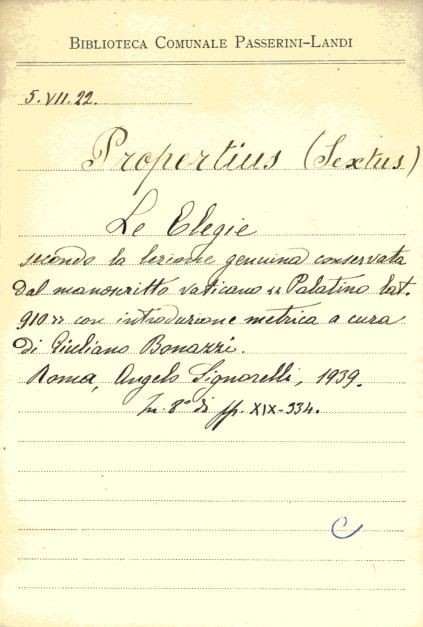 BIBLIOTECA COMUNALE PASSERINI-LANDI
5.VII.22.
Propertius (Sextus)
Le Elegie
secondo la lezione genuina conservata
dal manoscritto vaticano «Palatino Lat.
910» con introduzione metrica a cura
di Giuliano Bonazzi.
Roma, Angelo Signorelli, 1939.
In 8° di pp. XIX-334.
C